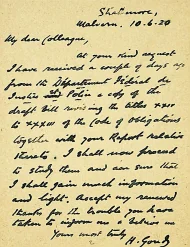 Shallmore,
Malvern, 10.6.20
My dear Colleague,
At your kind request
I have received a couple of days ago
from the Département Fédéral de
Justice and Police a copy of the
draft Bill revising the titles XXIV
to XXXIII of the Code of Obligations
together with your Report relative
thereto. I shall now proceed
to study them and am sure that
I shall gain much information
and light. Accept my renewed
thanks for the trouble you have
taken to
Yours most truly
H. Goudy